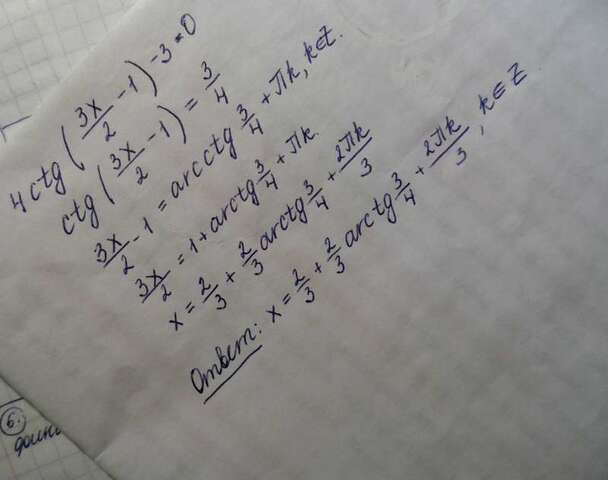 4ctg(3x/2 - 1) - 3 = 0
ctg(3x/2 - 1) = 3/4
3x/2 - 1 = arcctg 3/4 + Пk, k∈Z.
3x/2 = 1 + arctg 3/4 + Пk.
x = 2/3 + 2/3 arctg 3/4 + 2Пk/3
Ответ: x = 2/3 + 2/3 arctg 3/4 + 2Пk/3, k∈Z
6.